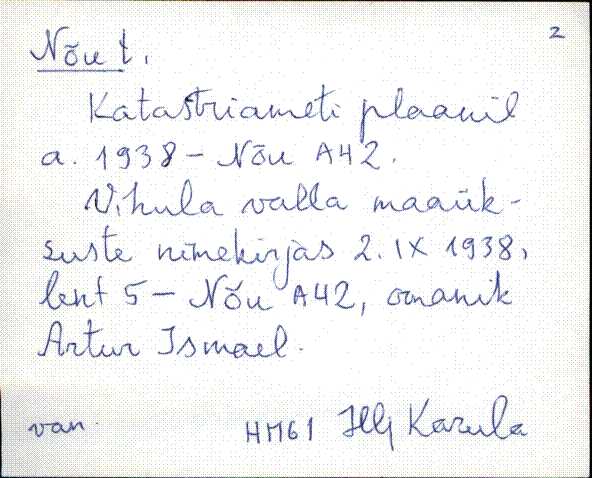 2
Nõu t.
Katastriameti plaanil
a. 1938 - Nõu A42.
Vihula valla maaük-
suste nimekirjas 2. IX 1938,
leht 5 - Nõu A42, omanik
Artur Ismael.
van. HM61 Illj Kazula